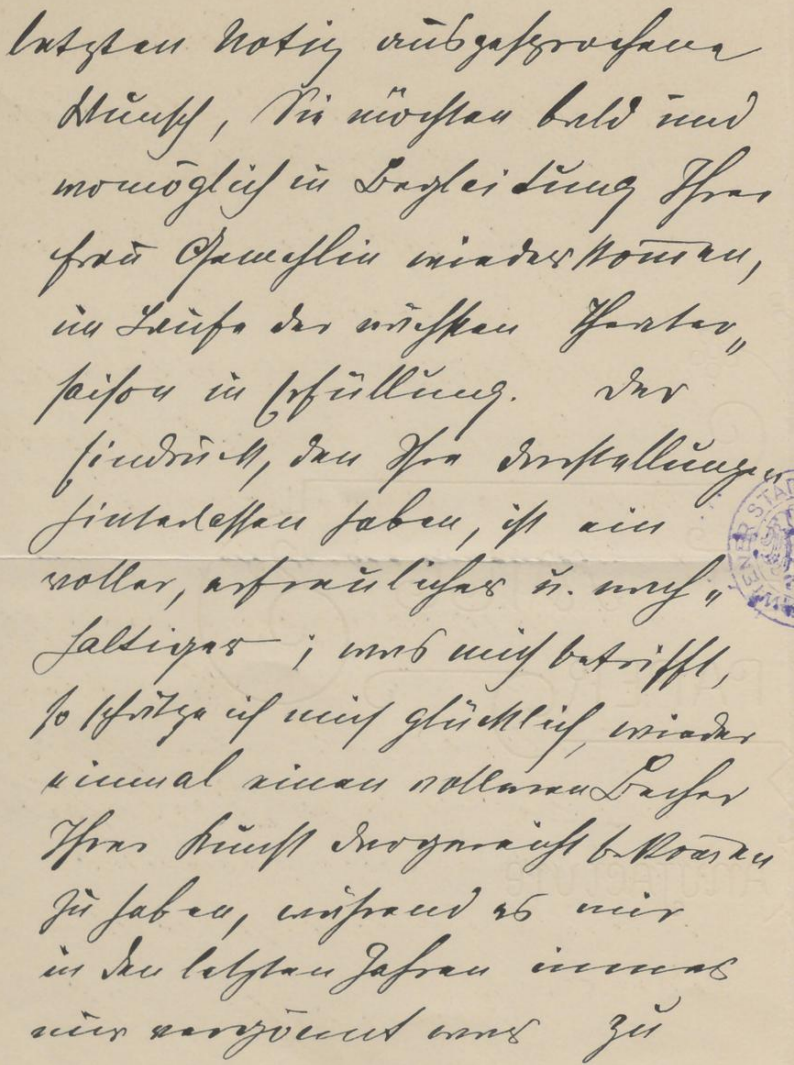 letzten Notiz ausgesprochene
Wunsch, Sie möchten bald und
womöglich in Begleitung Ihrer
Frau Gemahlin wiederkom̅en,
im Laufe der nächsten Theater„
saison in Erfüllung. Der
Eindruck, den Ihre Darstellungen
hinterlassen haben, ist ein
voller, erfreulicher u. nach„
haltiger; was mich betrifft,
so schätze ich mich glücklich, wieder
einmal einen volleren Becher
Ihrer Kunst dargereicht bekom̅en
zu haben, während es mir
in den letzten Jahren immer
nur vergönnt war zu
WIENER STAD